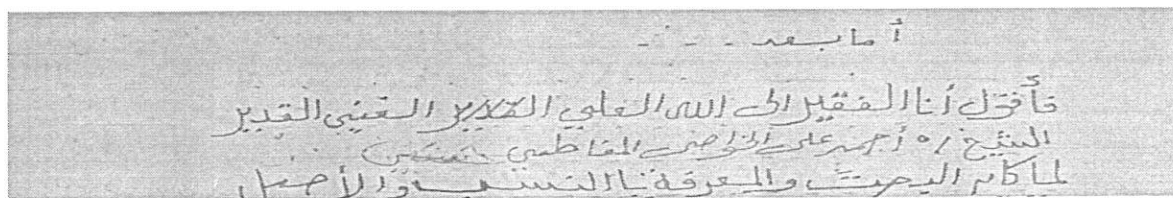 أما بعد - - -
فأقول أنا الفقير إلى الله العلي الغني القدير
الشيخ / أحمد علي الفاطمي
لما كان البحث والمعرفة بالنسب والأصل